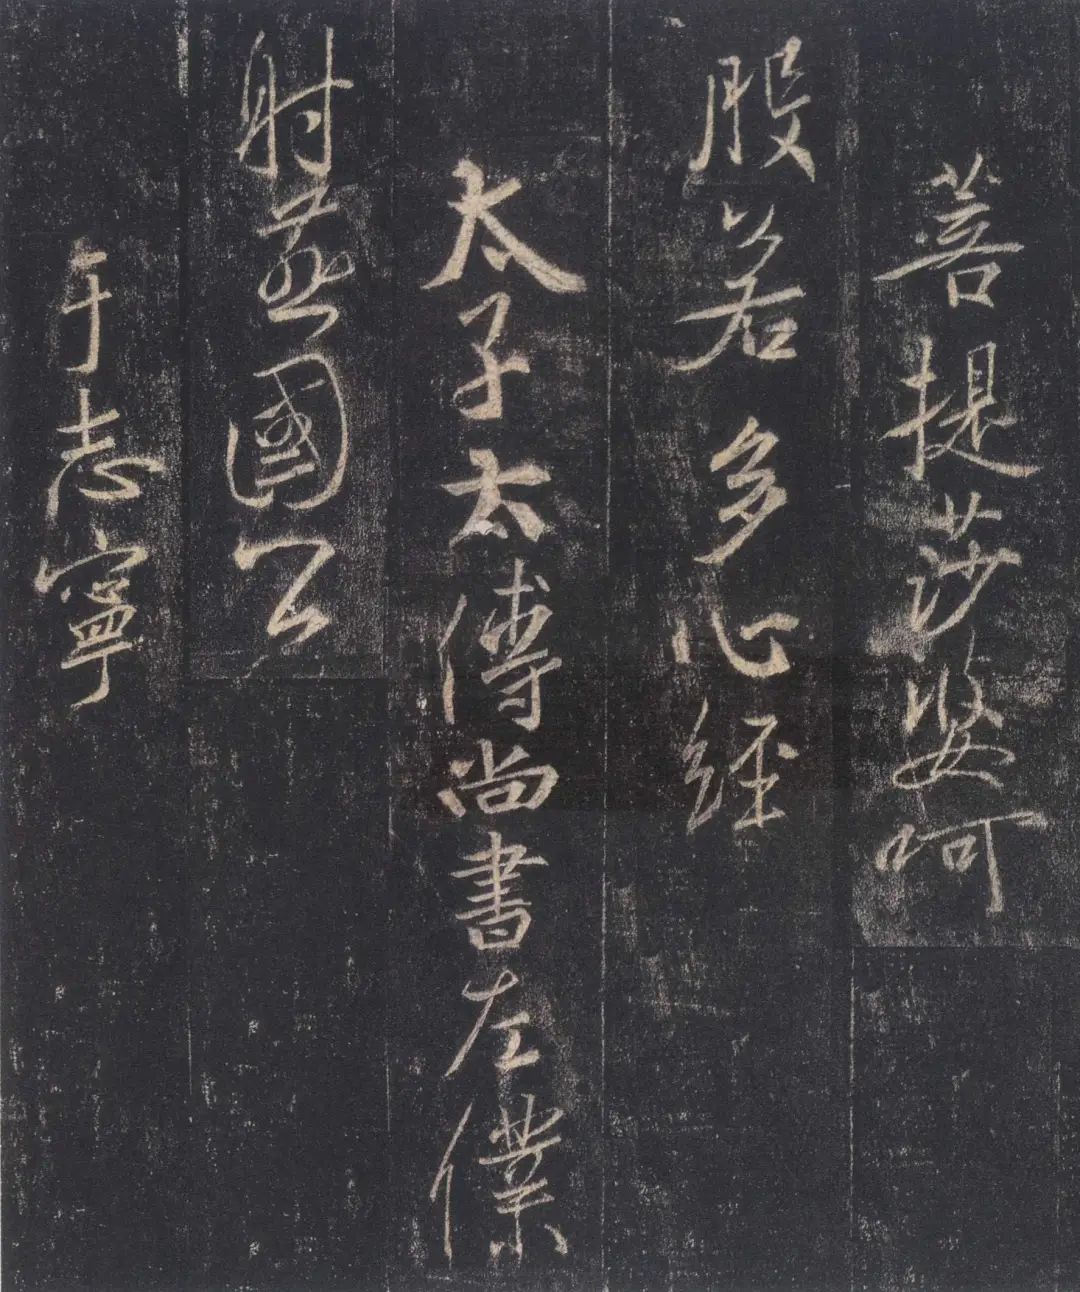 菩提莎婆呵
般若多心經
太子太傅尚書左僕
射燕國公
于志寧